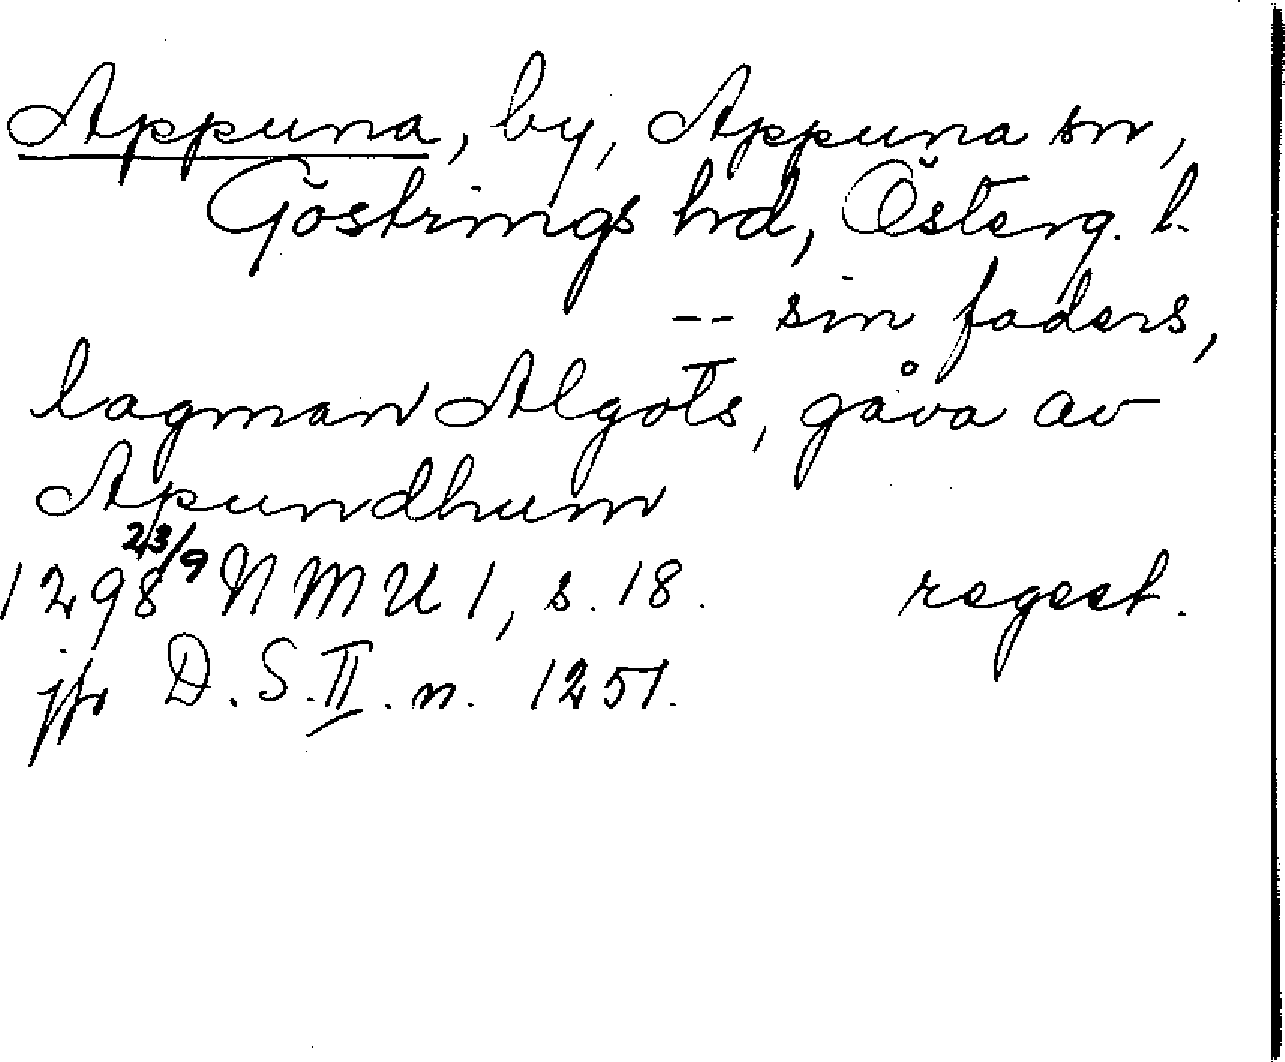 Appuna, by, Appuna sn,
Göstrings hrd, Österg. l.
-- sin faders,
lagman Algots, gåva av
Apundhum
1298 23/9 NMU 1, s. 18. regest.
jfr D.S.II. n. 1251.